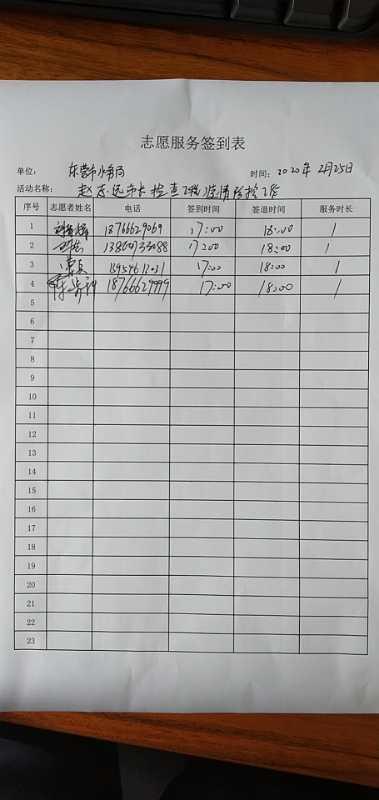 志愿服务签到表
单位: 东营市体育局 时间: 2020年 2月25日
活动名称: 赵志远市长检查工程疫情防控工作
序号 志愿者姓名 电话 签到时间 签退时间 服务时长
1 18766629069 17:00 18:00 1
2 17:00 18:00 1
3 17:00 18:00 1
4 18766629999 17:00 18:00 1
5
6
7
8
9
10
11
12
13
14
15
16
17
18
19
20
21
22
23